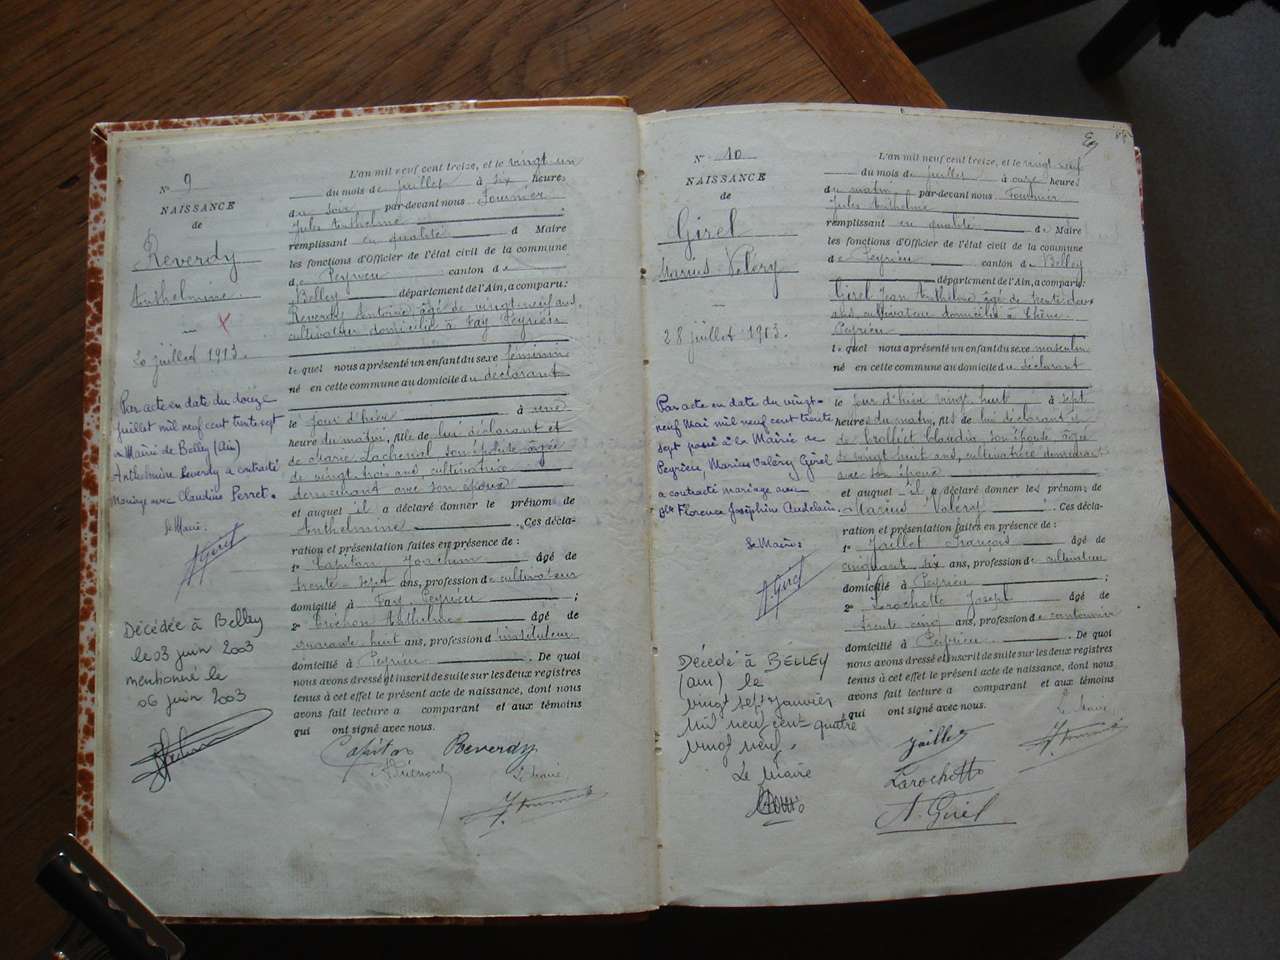 N° 9
NAISSANCE
de
Reverdy
Anthelmine
20 juillet 1913.
Par acte en date du douze
juillet mil neuf cent trente sept
Mairie de Belley (Ain)
Anthelmine Reverdy a contracté
mariage avec Claudius Perret.
Le Maire.
A Girel
Décédée à Belley
le 03 juin 2003
mentionné le
06 juin 2003
L'an mil neuf cent treize, et le vingt un
du mois de juillet à six heures
du soir par-devant nous Fournier
Jules Anthelme
remplissant en qualité de Maire
les fonctions d'Officier de l'état civil de la commune
de Peyrieu canton de
Belley département de l'Ain, a comparu :
Reverdy Antoine âgé de vingt-neuf ans
cultivateur domicilié à Fay Peyrieu
lequel nous a présenté un enfant du sexe féminin
né en cette commune au domicile du déclarant
le jour d'hier à une
heure du matin, fille de lui déclarant et
de Marie Lachenal son épouse âgée
de vingt trois ans cultivatrice
demeurant avec son époux
et auquel il a déclaré donner le prénom de
Anthelmine. Ces décla-
ration et présentation faites en présence de :
1° Capitan Joachim âgé de
trente-sept ans, profession de cultivateur
domicilié à Fay Peyrieu ;
2° Anthelme âgé de
quarante huit ans, profession d'instituteur
domicilié à Peyrieu. De quoi
nous avons dressé et inscrit de suite sur les deux registres
tenus à cet effet le présent acte de naissance, dont nous
avons fait lecture a comparant et aux témoins
qui ont signé avec nous.
Capitan Reverdy
Le Maire
J. Fournier
N° 10
NAISSANCE
de
Girel
Marius Valéry
28 juillet 1913.
Par acte en date du vingt-
neuf Mai mil neuf cent trente
sept passé à la Mairie de
Peyrieu, Marius Valéry Girel
a contracté mariage avec
Dlle Florence Joséphine Audelain.
Le Maire
A. Girel
Décédé à BELLEY
(ain) le
vingt sept janvier
mil neuf cent quatre
vingt neuf.
Le Maire
L'an mil neuf cent treize, et le vingt neuf
du mois de juillet à onze heures
du matin par-devant nous Fournier
Jules Anthelme
remplissant en qualité de Maire
les fonctions d'Officier de l'état civil de la commune
de Peyrieu canton de Belley
département de l'Ain, a comparu :
Girel Jean Anthelme âgé de trente deux
ans cultivateur domicilié à
Peyrieu
lequel nous a présenté un enfant du sexe masculin
né en cette commune au domicile du déclarant
le jour d'hier vingt huit à sept
heures du matin, fils de lui déclarant et
de Brolliet Claudia son épouse âgée
de vingt huit ans, cultivatrice demeurant
avec son époux
et auquel il a déclaré donner les prénoms de
Marius Valéry. Ces décla-
ration et présentation faites en présence de :
1° Jaillet François âgé de
cinquante six ans, profession de cultivateur
domicilié à Peyrieu ;
2° Larochette Joseph âgé de
trente cinq ans, profession de cantonnier
domicilié à Peyrieu. De quoi
nous avons dressé et inscrit de suite sur les deux registres
tenus à cet effet le présent acte de naissance, dont nous
avons fait lecture a comparant et aux témoins
qui ont signé avec nous.
Le Maire
Jaillet J. Fournier
Larochette
A. Girel